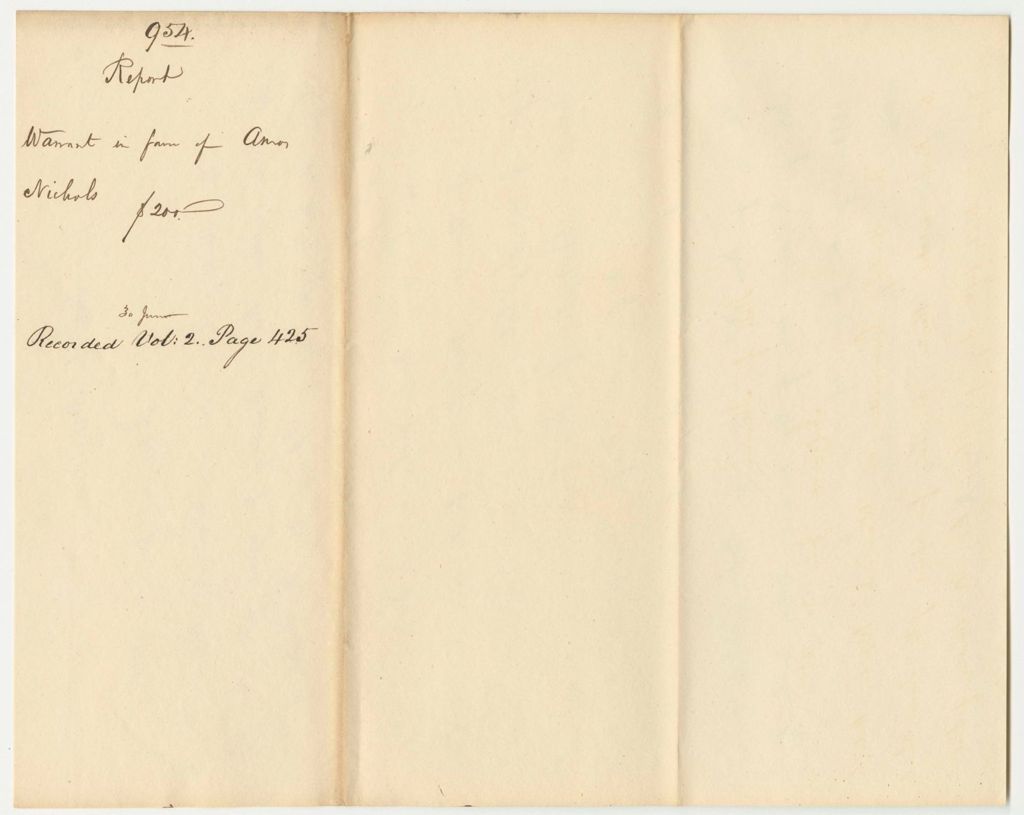 954.
Report
Warrant in favor of Amos
Nichols
$200.
30 June
Recorded Vol: 2. Page 425